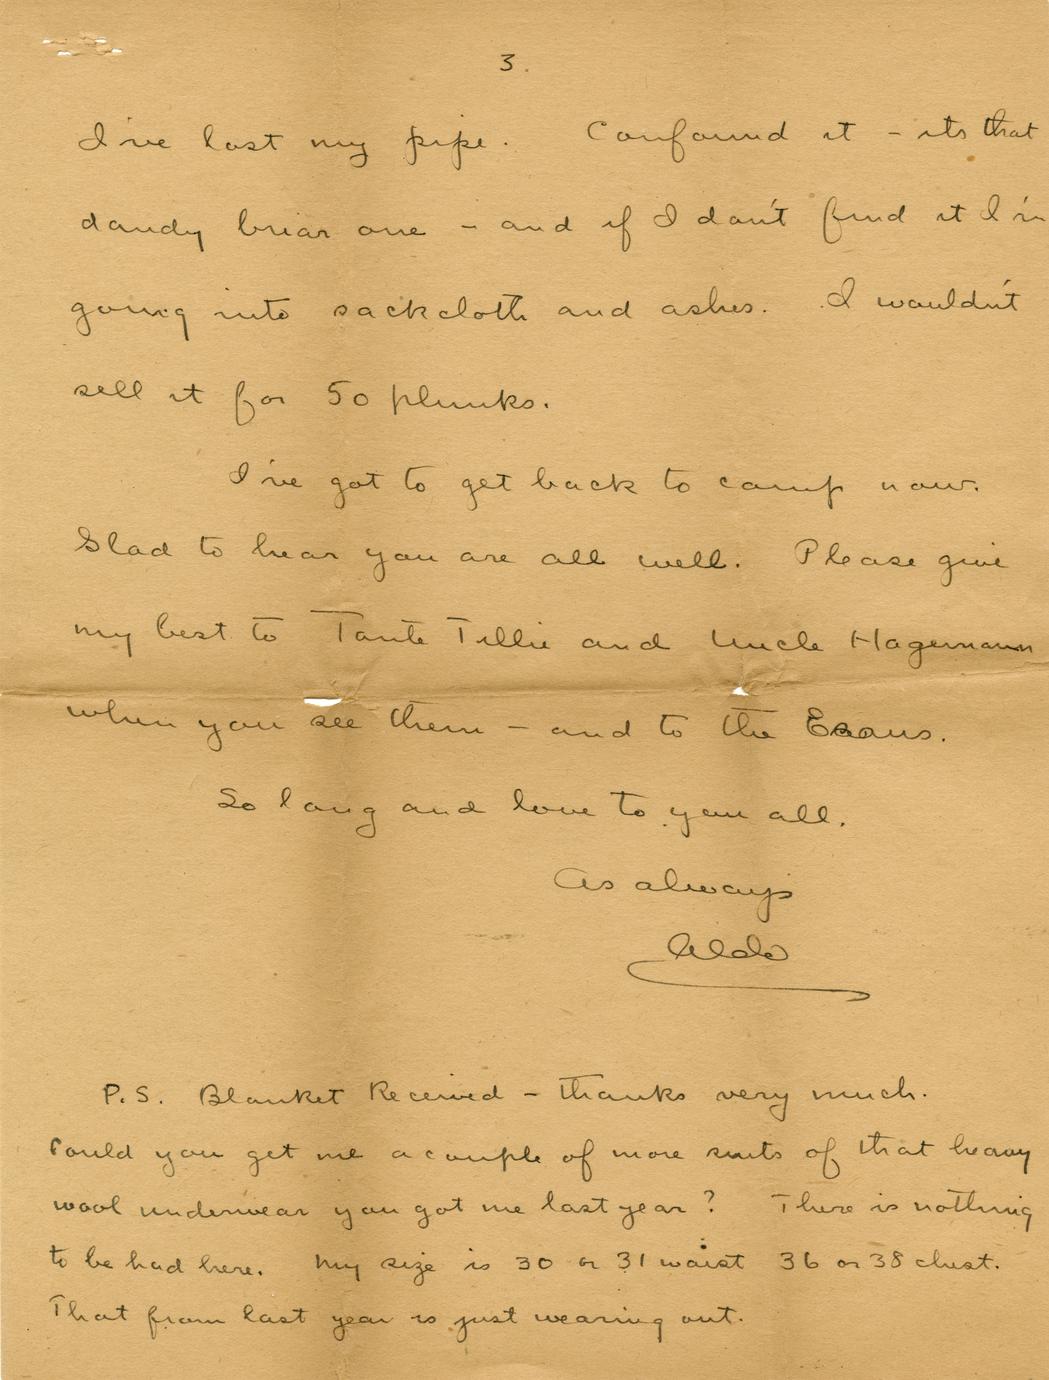 3.
I've lost my pipe. Confound it - its that
dandy briar one - and if I don't find it I'm
going into sackcloth and ashes. I wouldn't
sell it for 50 plunks.
I've got to get back to camp now.
Glad to hear you are all well. Please give
my best to Tante Tillie and Uncle Hagemann
when you see them - and to the Evans.
So long and love to you all.
As always
Aldo
P.S. Blanket Received - thanks very much.
Could you get me a couple of more suits of that heavy
wool underwear you got me last year? There is nothing
to be had here. My size is 30 or 31 waist 36 or 38 chest.
That from last year is just wearing out.